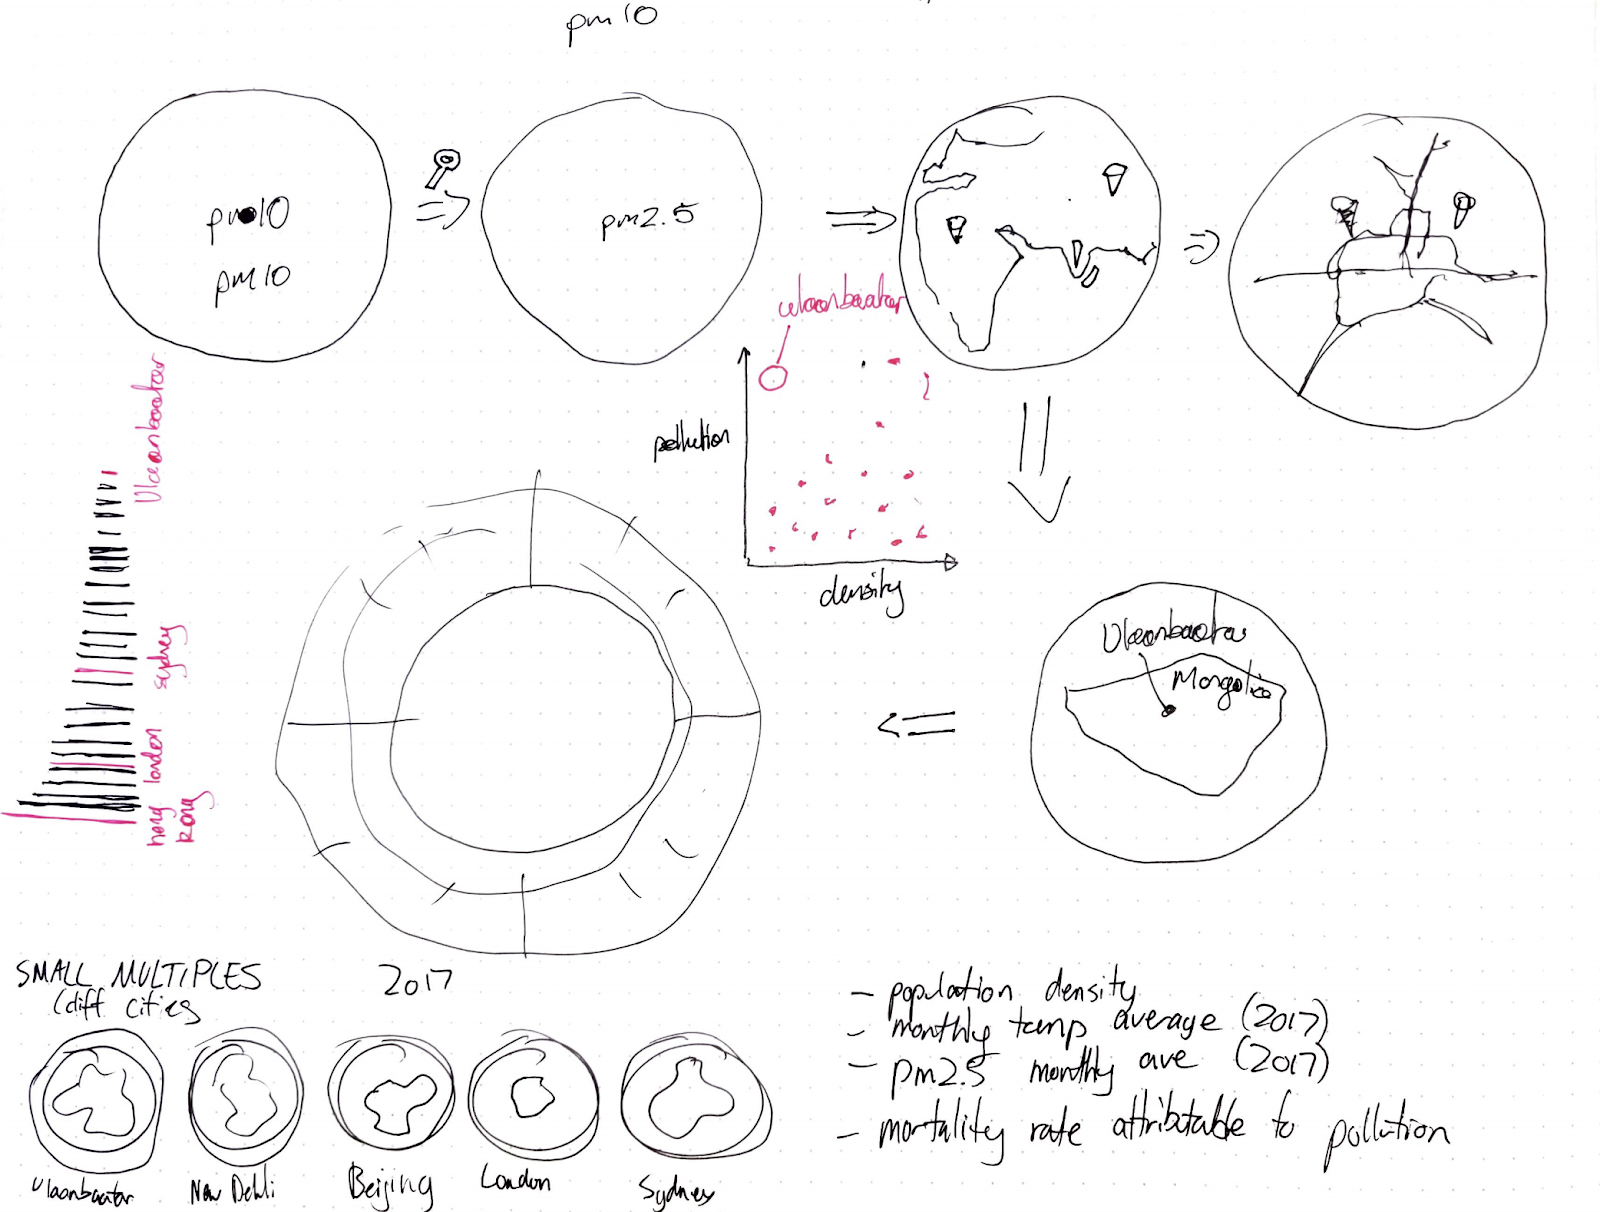 pm10
pm10
pm10
pm2.5
ulaanbaatar
pollution
density
Ulaanbaatar
sydney
london
hong
kong
Ulaanbaatar
Mongolia
SMALL MULTIPLES
(diff cities
2017
Ulaanbaatar
New Dehli
Beijing
London
Sydney
- population density
- monthly temp average (2017)
- pm2.5 monthly ave (2017)
- mortality rate attributable to pollution